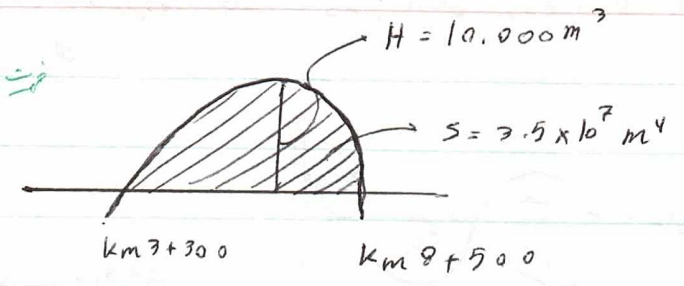 H = 10.000 m³
S = 3.5 × 10⁷ m⁴
km 3+300
km 8+500